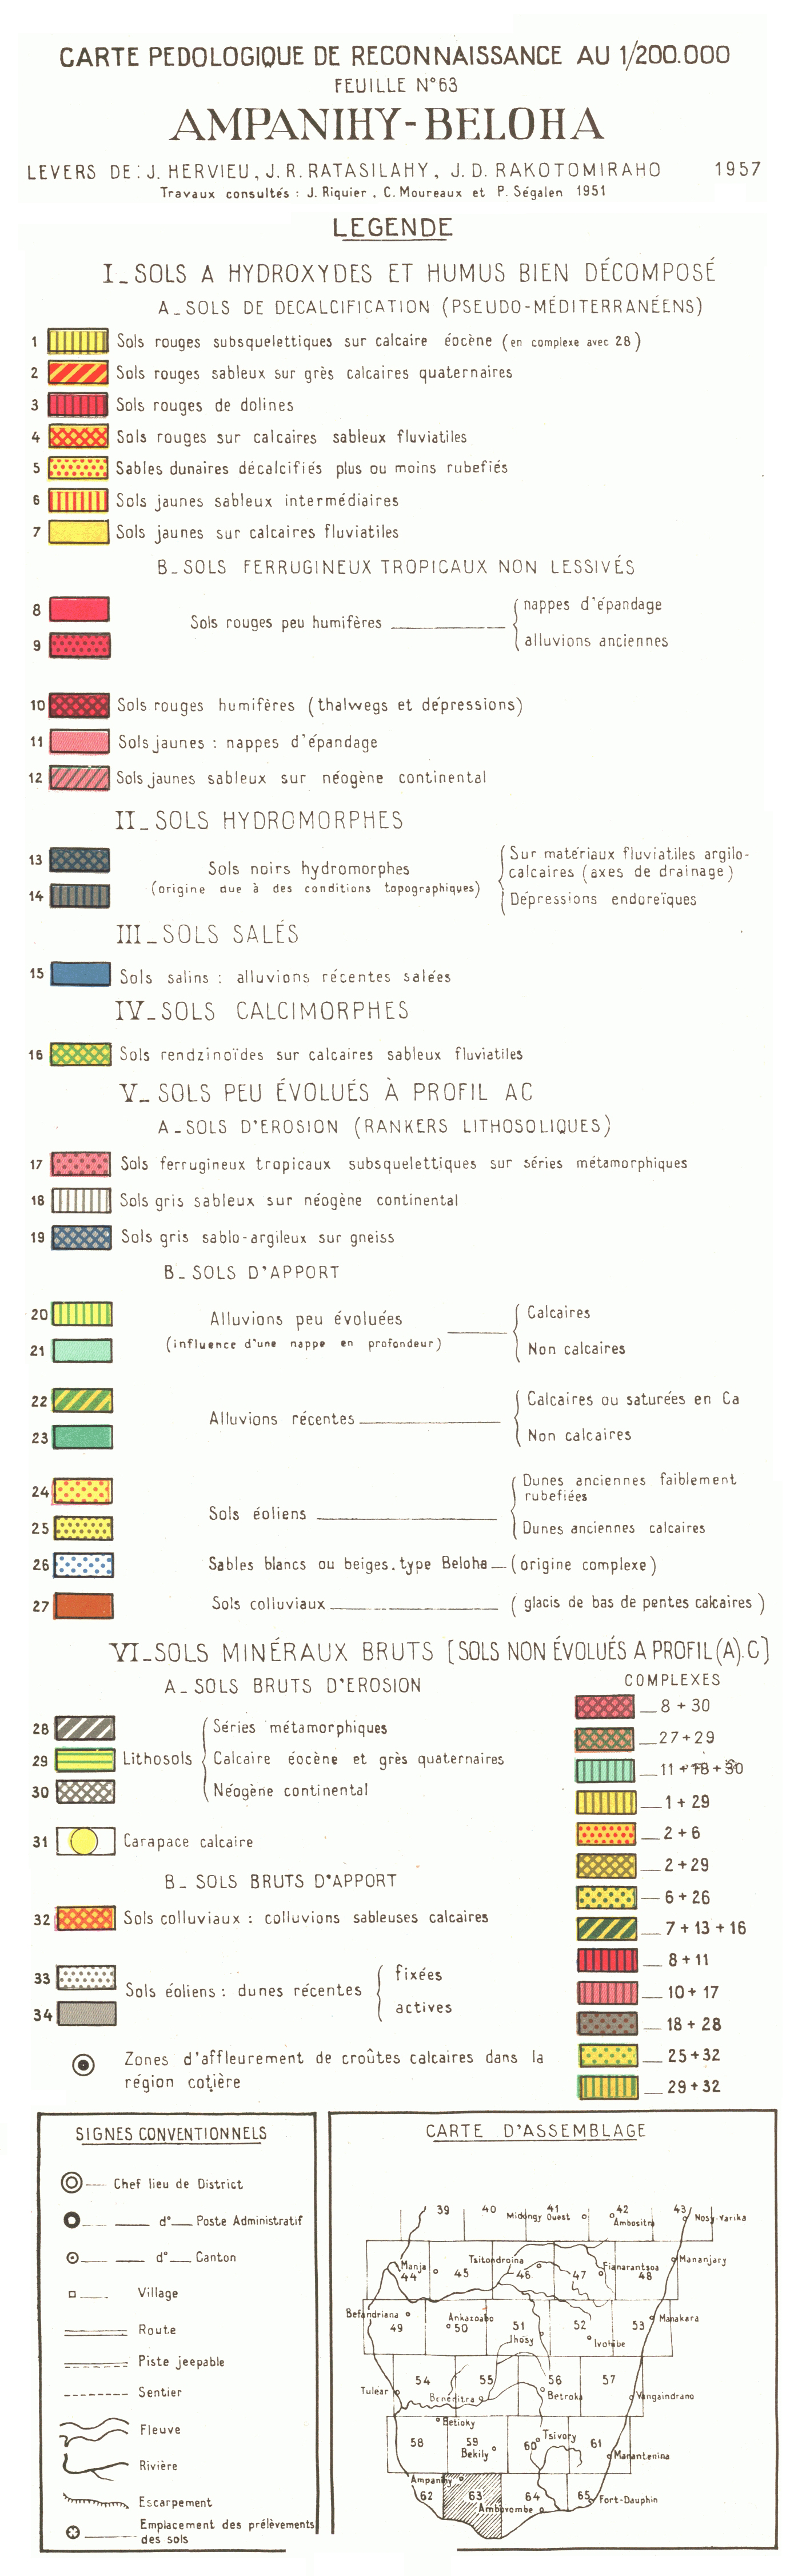 CARTE PEDOLOGIQUE DE RECONNAISSANCE AU 1/200.000
FEUILLE N°63
AMPANIHY-BELOHA
LEVERS DE: J. HERVIEU, J. R. RATASILAHY, J. D. RAKOTOMIRAHO 1957
Travaux consultés : J. Riquier, C. Moureaux et P. Ségalen 1951
LEGENDE
I_SOLS A HYDROXYDES ET HUMUS BIEN DÉCOMPOSÉ
A_SOLS DE DECALCIFICATION (PSEUDO-MÉDITERRANÉENS)
1 Sols rouges subsquelettiques sur calcaire éocène (en complexe avec 28)
2 Sols rouges sableux sur grès calcaires quaternaires
3 Sols rouges de dolines
4 Sols rouges sur calcaires sableux fluviatiles
5 Sables dunaires décalcifiés plus ou moins rubefiés
6 Sols jaunes sableux intermédiaires
7 Sols jaunes sur calcaires fluviatiles
B_SOLS FERRUGINEUX TROPICAUX NON LESSIVÉS
8 nappes d'épandage
Sols rouges peu humifères
9 alluvions anciennes
10 Sols rouges humifères (thalwegs et dépressions)
11 Sols jaunes : nappes d'épandage
12 Sols jaunes sableux sur néogène continental
II_SOLS HYDROMORPHES
13 Sols noirs hydromorphes Sur matériaux fluviatiles argilo-
calcaires (axes de drainage)
14 (origine due à des conditions topographiques) Dépressions endoreïques
III_SOLS SALÉS
15 Sols salins : alluvions récentes salées
IV_SOLS CALCIMORPHES
16 Sols rendzinoïdes sur calcaires sableux fluviatiles
V_ SOLS PEU ÉVOLUÉS À PROFIL AC
A_SOLS D'EROSION (RANKERS LITHOSOLIQUES)
17 Sols ferrugineux tropicaux subsquelettiques sur séries métamorphiques
18 Sols gris sableux sur néogène continental
19 Sols gris sablo-argileux sur gneiss
B_SOLS D'APPORT
20 Alluvions peu évoluées Calcaires
21 (influence d'une nappe en profondeur) Non calcaires
22 Calcaires ou saturées en Ca
Alluvions récentes
23 Non calcaires
24 Dunes anciennes faiblement
rubefiées
Sols éoliens
25 Dunes anciennes calcaires
26 Sables blancs ou beiges. type Beloha_(origine complexe)
27 Sols colluviaux (glacis de bas de pentes calcaires)
VI_SOLS MINÉRAUX BRUTS [SOLS NON ÉVOLUÉS A PROFIL(A).C]
A_ SOLS BRUTS D'EROSION
28 Séries métamorphiques
29 Lithosols Calcaire éocène et grès quaternaires
30 Néogène continental
31 Carapace calcaire
B_ SOLS BRUTS D'APPORT
32 Sols colluviaux : colluvions sableuses calcaires
33 fixées
Sols éoliens : dunes récentes
34 actives
Zones d'affleurement de croûtes calcaires dans la
région cotière
COMPLEXES
8 + 30
27 + 29
11 + 18 + 30
1 + 29
2 + 6
2 + 29
6 + 26
7 + 13 + 16
8 + 11
10 + 17
18 + 28
25 + 32
29 + 32
SIGNES CONVENTIONNELS
Chef lieu de District
d° Poste Administratif
d° Canton
Village
Route
Piste jeepable
Sentier
Fleuve
Rivière
Escarpement
Emplacement des prélèvements
des sols
CARTE D'ASSEMBLAGE
39 40 41 42 43
Midongy Ouest Ambositra Nosy-Varika
Manja Tsitondroina Fianarantsoa Mananjary
44 45 46 47 48
Befandriana Ankazoabo Manakara
49 50 51 52 53
Ihosy Ivohibe
54 55 56 57
Tulear Benenitra Betroka Vangaindrano
Betioky Tsivory
58 59 60 61
Bekily Manantenina
Ampanihy
62 63 64 65 Fort-Dauphin
Ambovombe